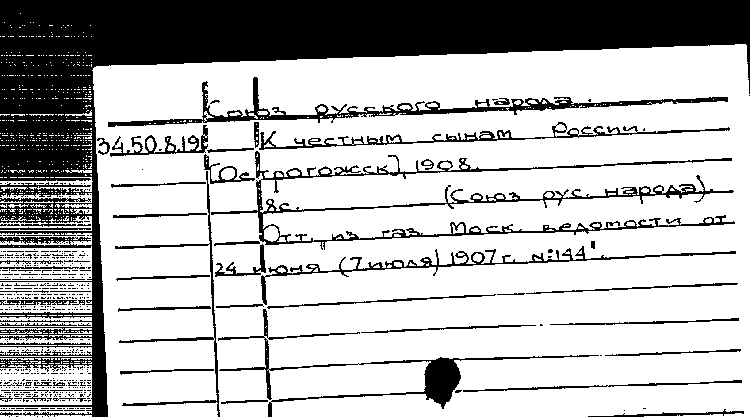 Союз русского народа.
34.50.8.19 К честным сынам России.
[Острогожск], 1908.
8с. (Союз рус. народа).
Отт. из газ. Моск. ведомости от
24 июня (7 июля) 1907 г. №144".